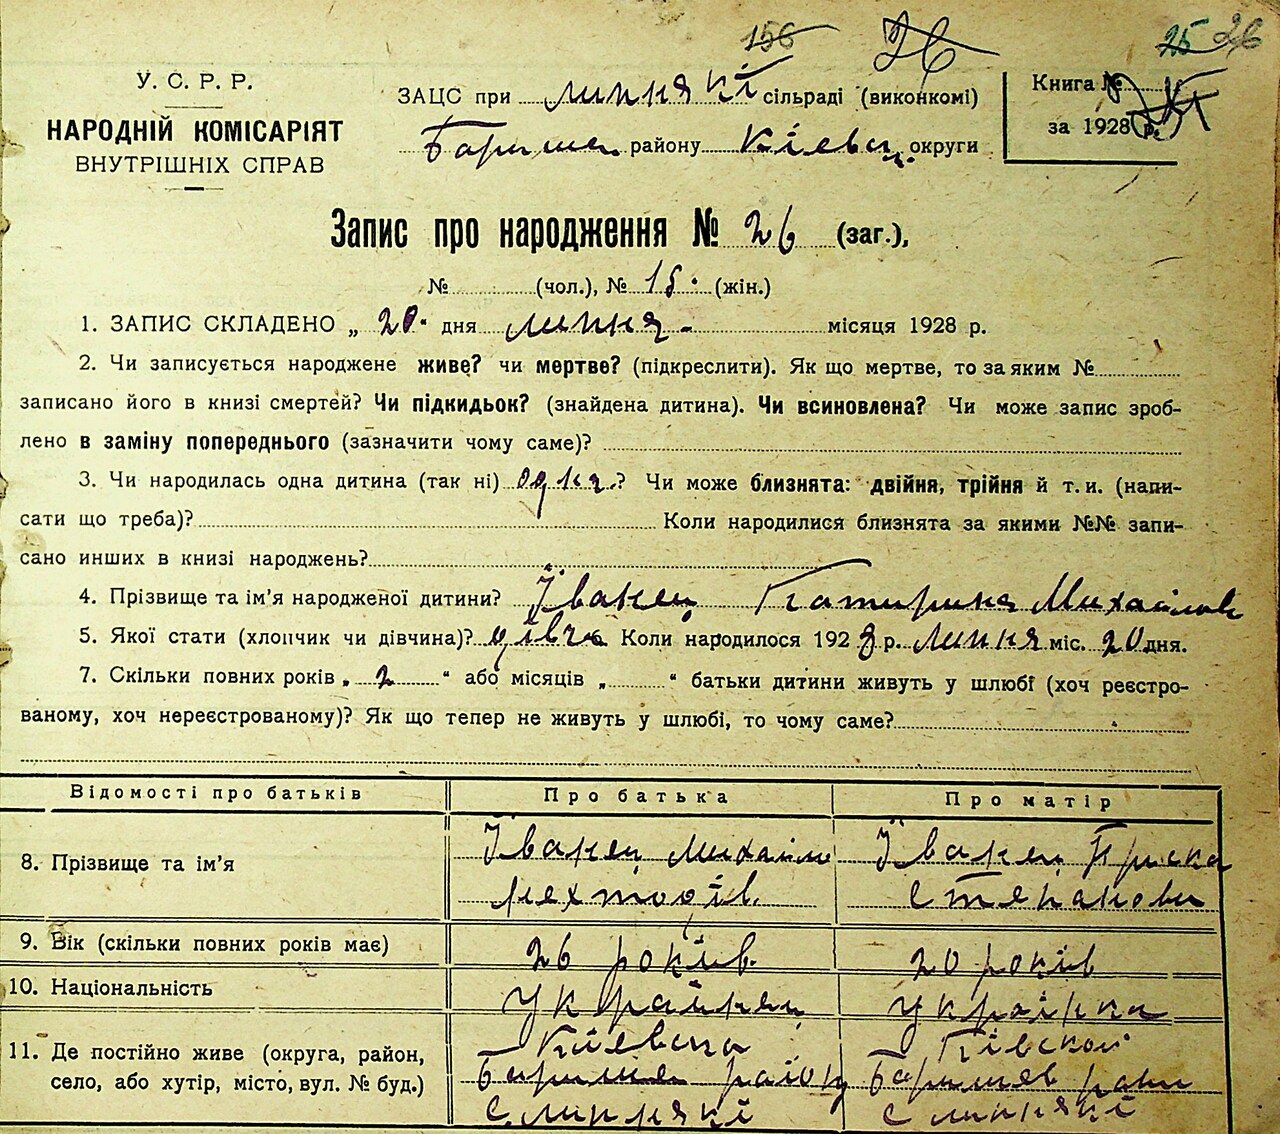 156 26 25 26
У. С. Р. Р.
НАРОДНІЙ КОМІСАРІЯТ
ВНУТРІШНІХ СПРАВ
ЗАЦС при липнякі сільраді (виконкомі)
Баришев району Кіевск. округи
Книга №
за 1928 р.
Запис про народження № 26 (заг.),
№ (чол.), № 15. (жін.)
1. ЗАПИС СКЛАДЕНО „ 20. дня липня - місяця 1928 р.
2. Чи записується народжене живе? чи мертве? (підкреслити). Як що мертве, то за яким №
записано його в книзі смертей? Чи підкидьок? (знайдена дитина). Чи всиновлена? Чи може запис зроб-
лено в заміну попереднього (зазначити чому саме)?
3. Чи народилась одна дитина (так ні) одна.? Чи може близнята: двійня, трійня й т. и. (напи-
сати що треба)? Коли народилися близнята за якими №№ запи-
сано инших в книзі народжень?
4. Прізвище та ім'я народженої дитини? Їванец Катирина Михайлов
5. Якої стати (хлопчик чи дівчина)? дівча Коли народилося 1928 р. липня міс. 20 дня.
7. Скільки повних років „ 2 “ або місяців „ “ батьки дитини живуть у шлюбі (хоч реєстро-
ваному, хоч нереєстрованому)? Як що тепер не живуть у шлюбі, то чому саме?
Відомості про батьків Про батька Про матір
8. Прізвище та ім'я Їванец Михайло Їванец Приска
Степанови
9. Вік (скільки повних років має) 26 років. 20 років
10. Національність Українец українка
11. Де постійно живе (округа, район, село, або хутір, місто, вул. № буд.) Київска Київской
Баришев району Баришев раи
с. липнякі с липнякі